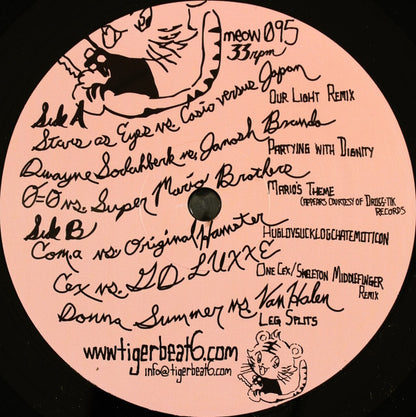 meow 095
33 rpm
Side A
Stars as Eyes vs. Casio versus Japan
Our Light Remix
Dwayne Sodahberk vs. Janosh Brando
Partying with Dignity
0=0 vs. Super Mario Brothers
Mario's Theme
(appears courtesy of Dross:tik
Records
Side B
Coma vs. Original Hamster
Huglovsucklogchatemotticon
Cex vs. GD LUXXE
One Cex/Skeleton Middlefinger
Remix
Donna Summer vs. Van Halen
Leg Splits
www.tigerbeat6.com
info@tigerbeat6.com